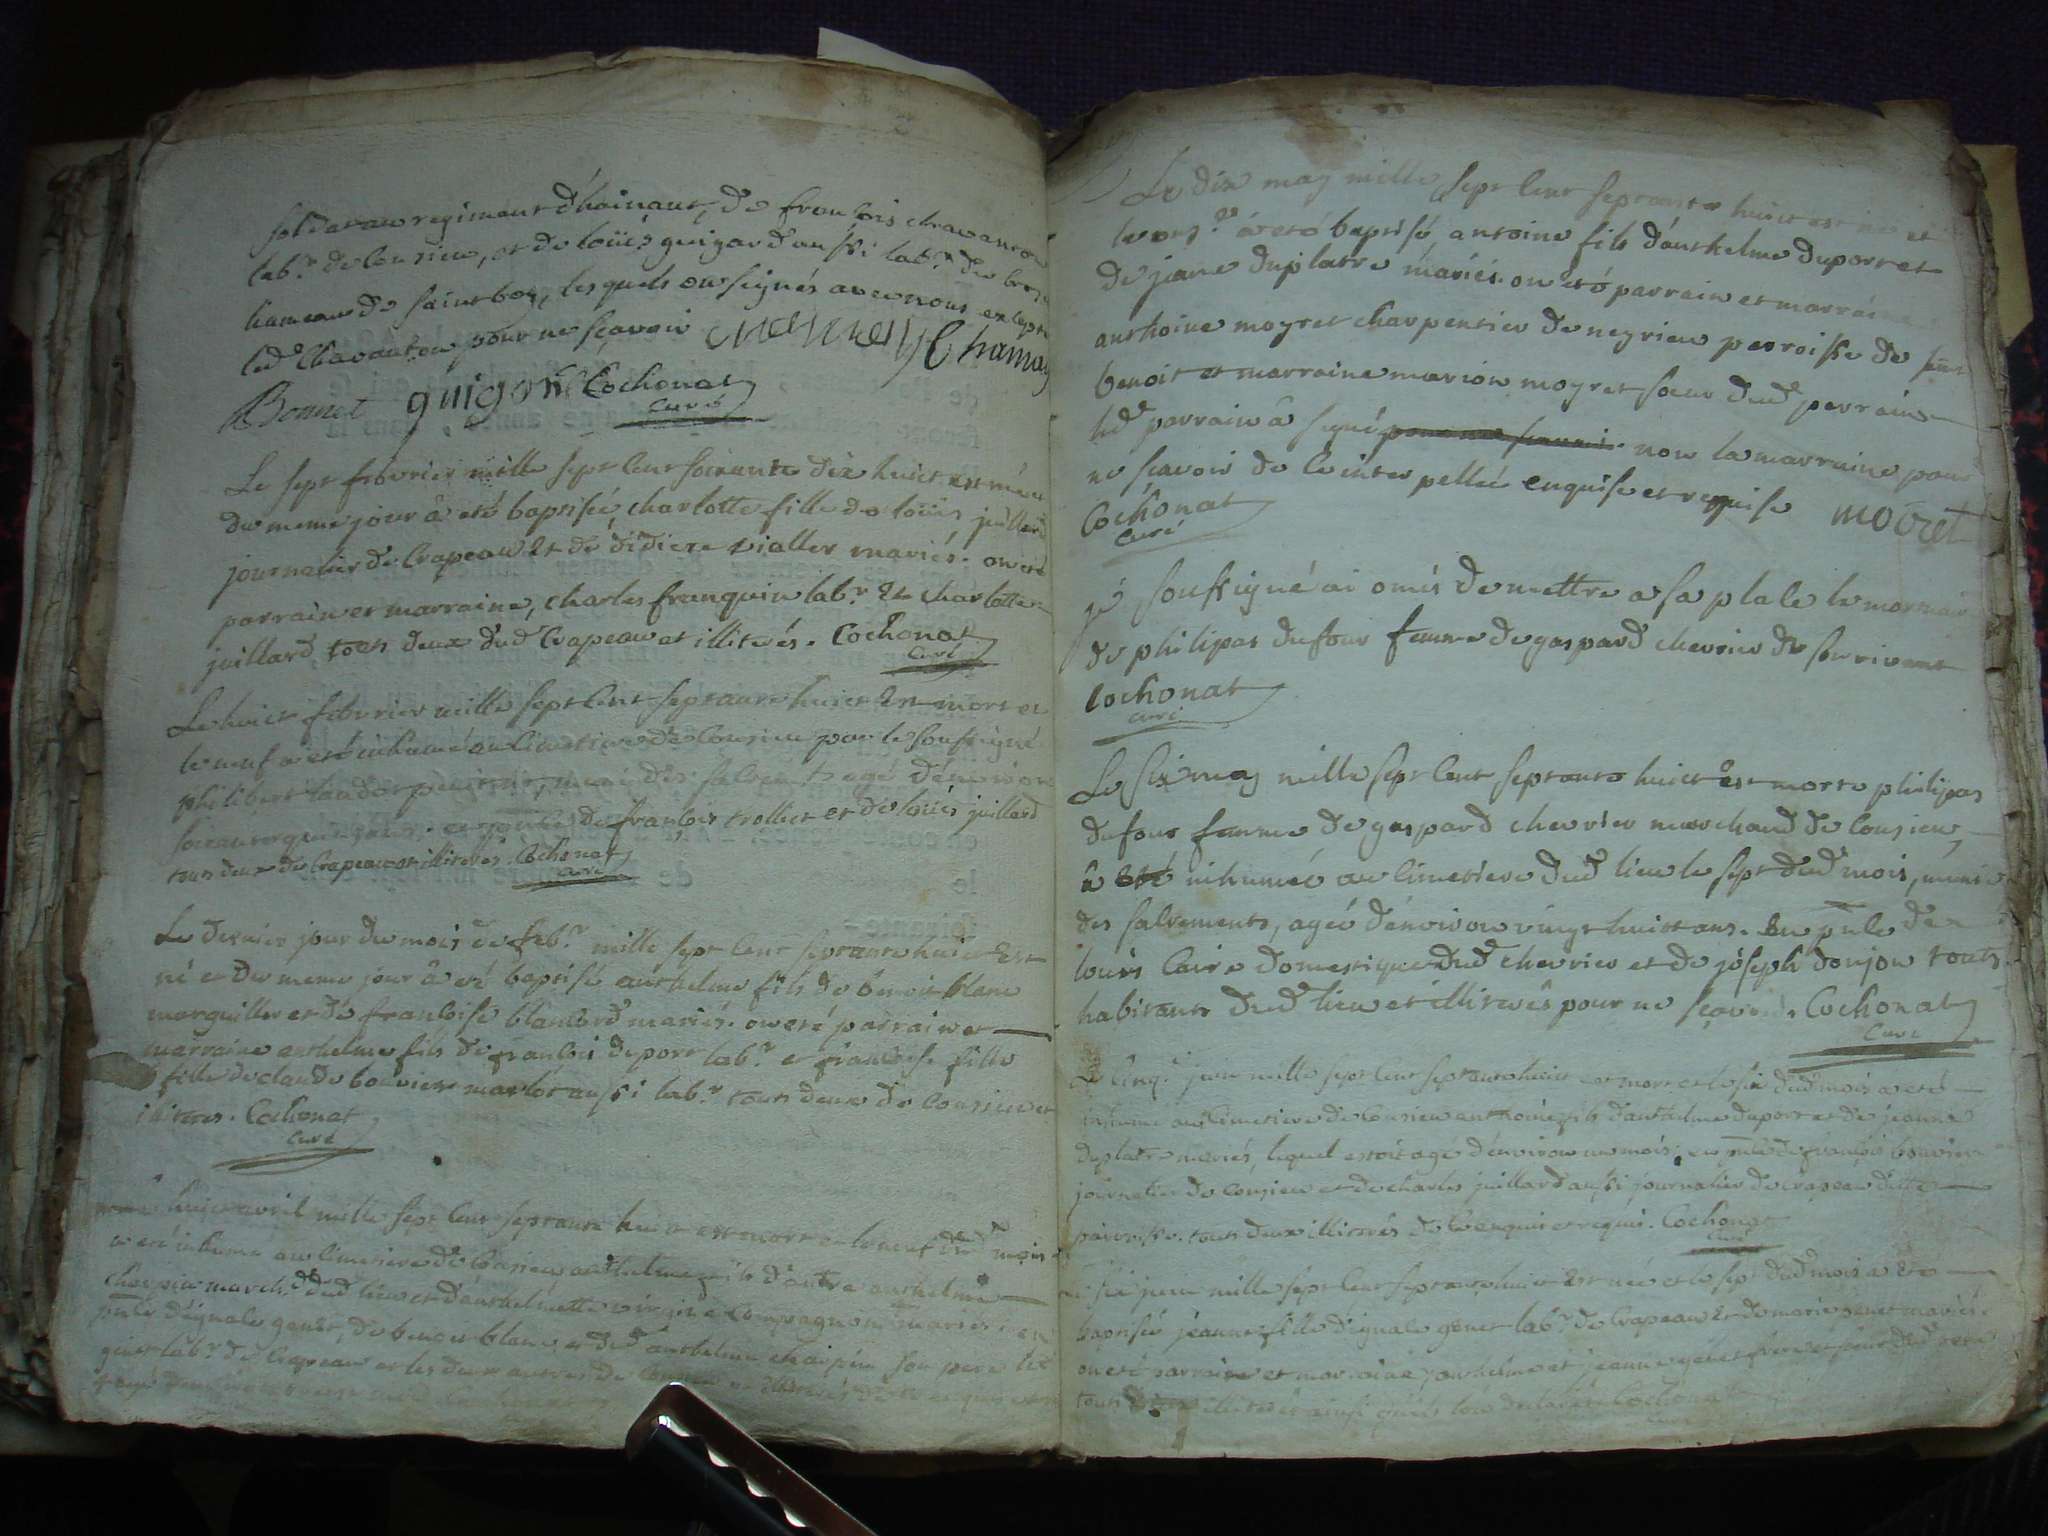 soldat au regiment d'hainaut, de françois chavanton
lab.r de Cousieu, et de loüis guigard aussi lab.r de
hameau de saint boy, lesquels on signés avec nous excepté
led.t Chavanton pour ne sçavoir Chamay
Bonnet guigord Cochonat
curé
Le sept febvrier mille sept cent soixante dix huict est née
du meme jour â eté baptisée charlotte fille de loüis juillard
journalier de Crapeau et de didiere vialler mariés. on eté
parrain et marraine, charles franquin lab.r et charlotte
juillard touts deux dud Crapeau et illiterés. Cochonat
curé
Le huict febvrier mille sept cent septante huict est mort et
le neuf a eté inhumé au cimetiere de Cousieu par le soussigné
philibert muni des sacrements agé d'environ
soixante de françois trollict et de loüis juillard
touts deux de Crapeau et illiterés Cochonat
curé
Le dernier jour du mois de feb.r mille sept cent septante huict est
né et du meme jour â eté baptisé anthelme fils de benoit blanc
marguillier et de françoise blanchard mariés. on eté parrain et
marraine anthelme fils de françois deporr lab.r et françoise fille
fille de claude bouvier marlot aussi lab.r touts deux de Cousieu et
illiteres. Cochonat
curé
huict avril mille sept cent septante huict est mort et le neuf dud mois
a eté inhumé au cimetiere de Cousieu anthelme fils d'autre anthelme
charpin march.d dud lieu et d'anthelmette virginie Compagnon mariés en
pñce d'ignace genet, de benoit blanc et dud anthelme charpin son pere led
genet lab.r de Crapeau et les deux autres de Cousieu
Le dix may mille sept cent septante huict est né et
le onz.e â eté baptisé antoine fils d'anthelme duport et
de jeane duplatre mariés. on eté parrain et marraine
anthoine moyret charpentier de neyrieu parroisse de saint
benoit et marraine marion moyret soeur dud parrain
led parrain â signé pour ne sçavoir non la marraine pour
ne sçavoir de ce interpellée enquise et requise moiret
Cochonat
curé
je soussigné ai omis de mettre a sa place le mortuaire
de philipas dufour femme de gaspard chevrier de suivant
Cochonat
curé
Le six may mille sept cent septante huict est morte philipas
dufour femme de gaspard chevrier marchand de Cousieu,
â eté inhumée au cimetiere dud lieu le sept dud mois, munie
des sacrements, agée d'environ vingt huict ans. En pñce de
louis Caire domestique dud chevrier et de joseph donjon touts
habitants dud lieu et illiterés pour ne sçavoir. Cochonat
curé
Le Cinq.e juin mille sept cent septante huict est mort et le six dud mois a eté
inhumé au Cimetiere de Cousieu anthoine fils d'anthelme duport et de jeanne
duplatre mariés, lequel etoit agé d'environ un mois, en pñce de françois bouvier
journalier de Cousieu et de charles juillard aussi journalier de crapeau ditte
parroisse. touts deux illiterés de ce enquis et requis. Cochonat
curé
six juin mille sept cent septante huict est née et le sept dud mois a eté
baptisée jeanne fille d'ignace genet lab.r de Crapeau et de marie genet mariés.
on eté parrain et marraine, anthelme et jeanne genet frere et soeur dud
touts illiterés ainsi Cochonat